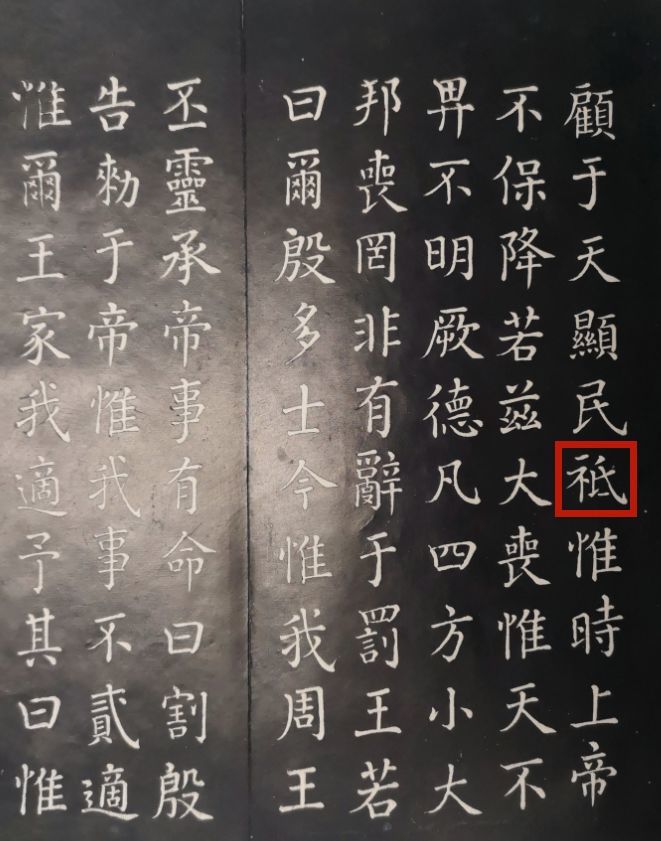 顧于天顯民祗惟時上帝
不保降若茲大喪惟天不
畀不明厥德凡四方小大
邦喪罔非有辭于罰王若
曰爾殷多士今惟我周王
丕靈承帝事有命曰割殷
告勑于帝惟我事不貳適
惟爾王家我適予其曰惟